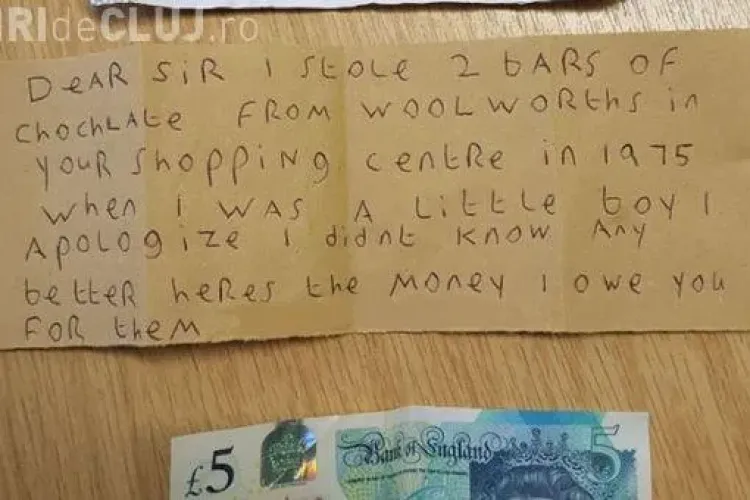 ȘTIRIdeCLUJ.ro
DeAR SiR I StoLe 2 bARS OF
ChochLAte FROM WOOLWORths in
YOUR Shopping centre in 1975
when I WAS A Little boy I
Apologize I didnt know Any
better heres the Money I owe you
FOR theM
£5 Bank of England 5